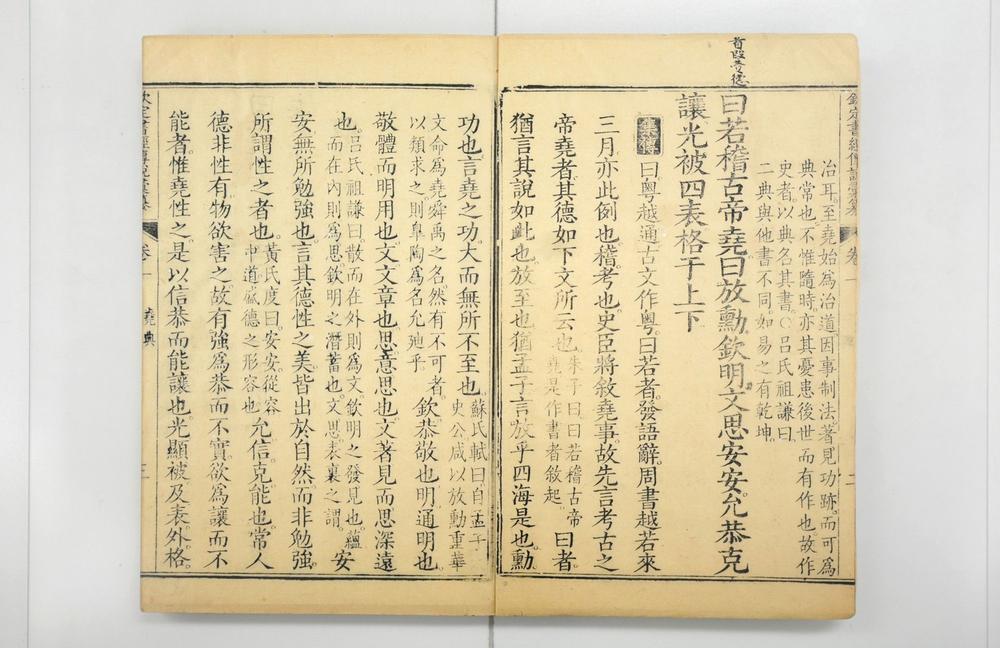 首叚贊德
欽定書經傳說彙纂
卷一
二
治耳。至堯始爲治道。因事制法。著見功跡。而可爲
典常也。不惟隨時。亦其憂患後世而有作也。故作
史者。以典名其書。〇呂氏祖謙曰。
二典與他書不同。如易之有乾坤。
曰若稽古帝堯曰放勳欽明文思安安允恭克
讓光被四表格于上下
集傳
曰粵越通古文作粵。曰若者。發語辭。周書越若來
三月。亦此例也。稽。考也。史臣將敘堯事。故先言考古之
帝堯者。其德如下文所云也。
朱子曰。曰若稽古帝
堯。是作書者敘起。
曰者。
猶言其說如此也。放。至也。猶孟子言放乎四海是也。勳。
功也。言堯之功大而無所不至也。
蘇氏軾曰。自孟子
史公咸以放勳重華
文命爲堯舜禹之名。然有不可者。
以類求之。則皐陶爲名允迪乎。
欽。恭敬也。明。通明也。
敬體而明用也。文。文章也。思。意思也。文著見而思深遠
也。
呂氏祖謙曰。散而在外則爲文。欽明之發見也。蘊
而在內則爲思。欽明之潛蓄也。文思。表裏之謂。
安
安。無所勉強也。言其德性之美。皆出於自然。而非勉強。
所謂性之者也。
黃氏度曰。安安。從容
中道。盛德之形容也
允。信。克。能也。常人
德非性有。物欲害之。故有強爲恭而不實。欲爲讓而不
能者。惟堯性之。是以信恭而能讓也。光。顯。被。及。表。外。格。
欽定書經傳說彙纂
卷一
堯典
三